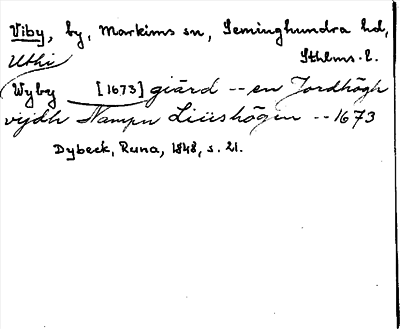 Viby, by, Markims sn, Seminghundra hd,
Uthi Sthlms. l.
Wyby [1673] giärd -- en Jordhögh
vijdh Nampn Liüshögen -- 1673
Dybeck, Runa, 1848, s. 21.